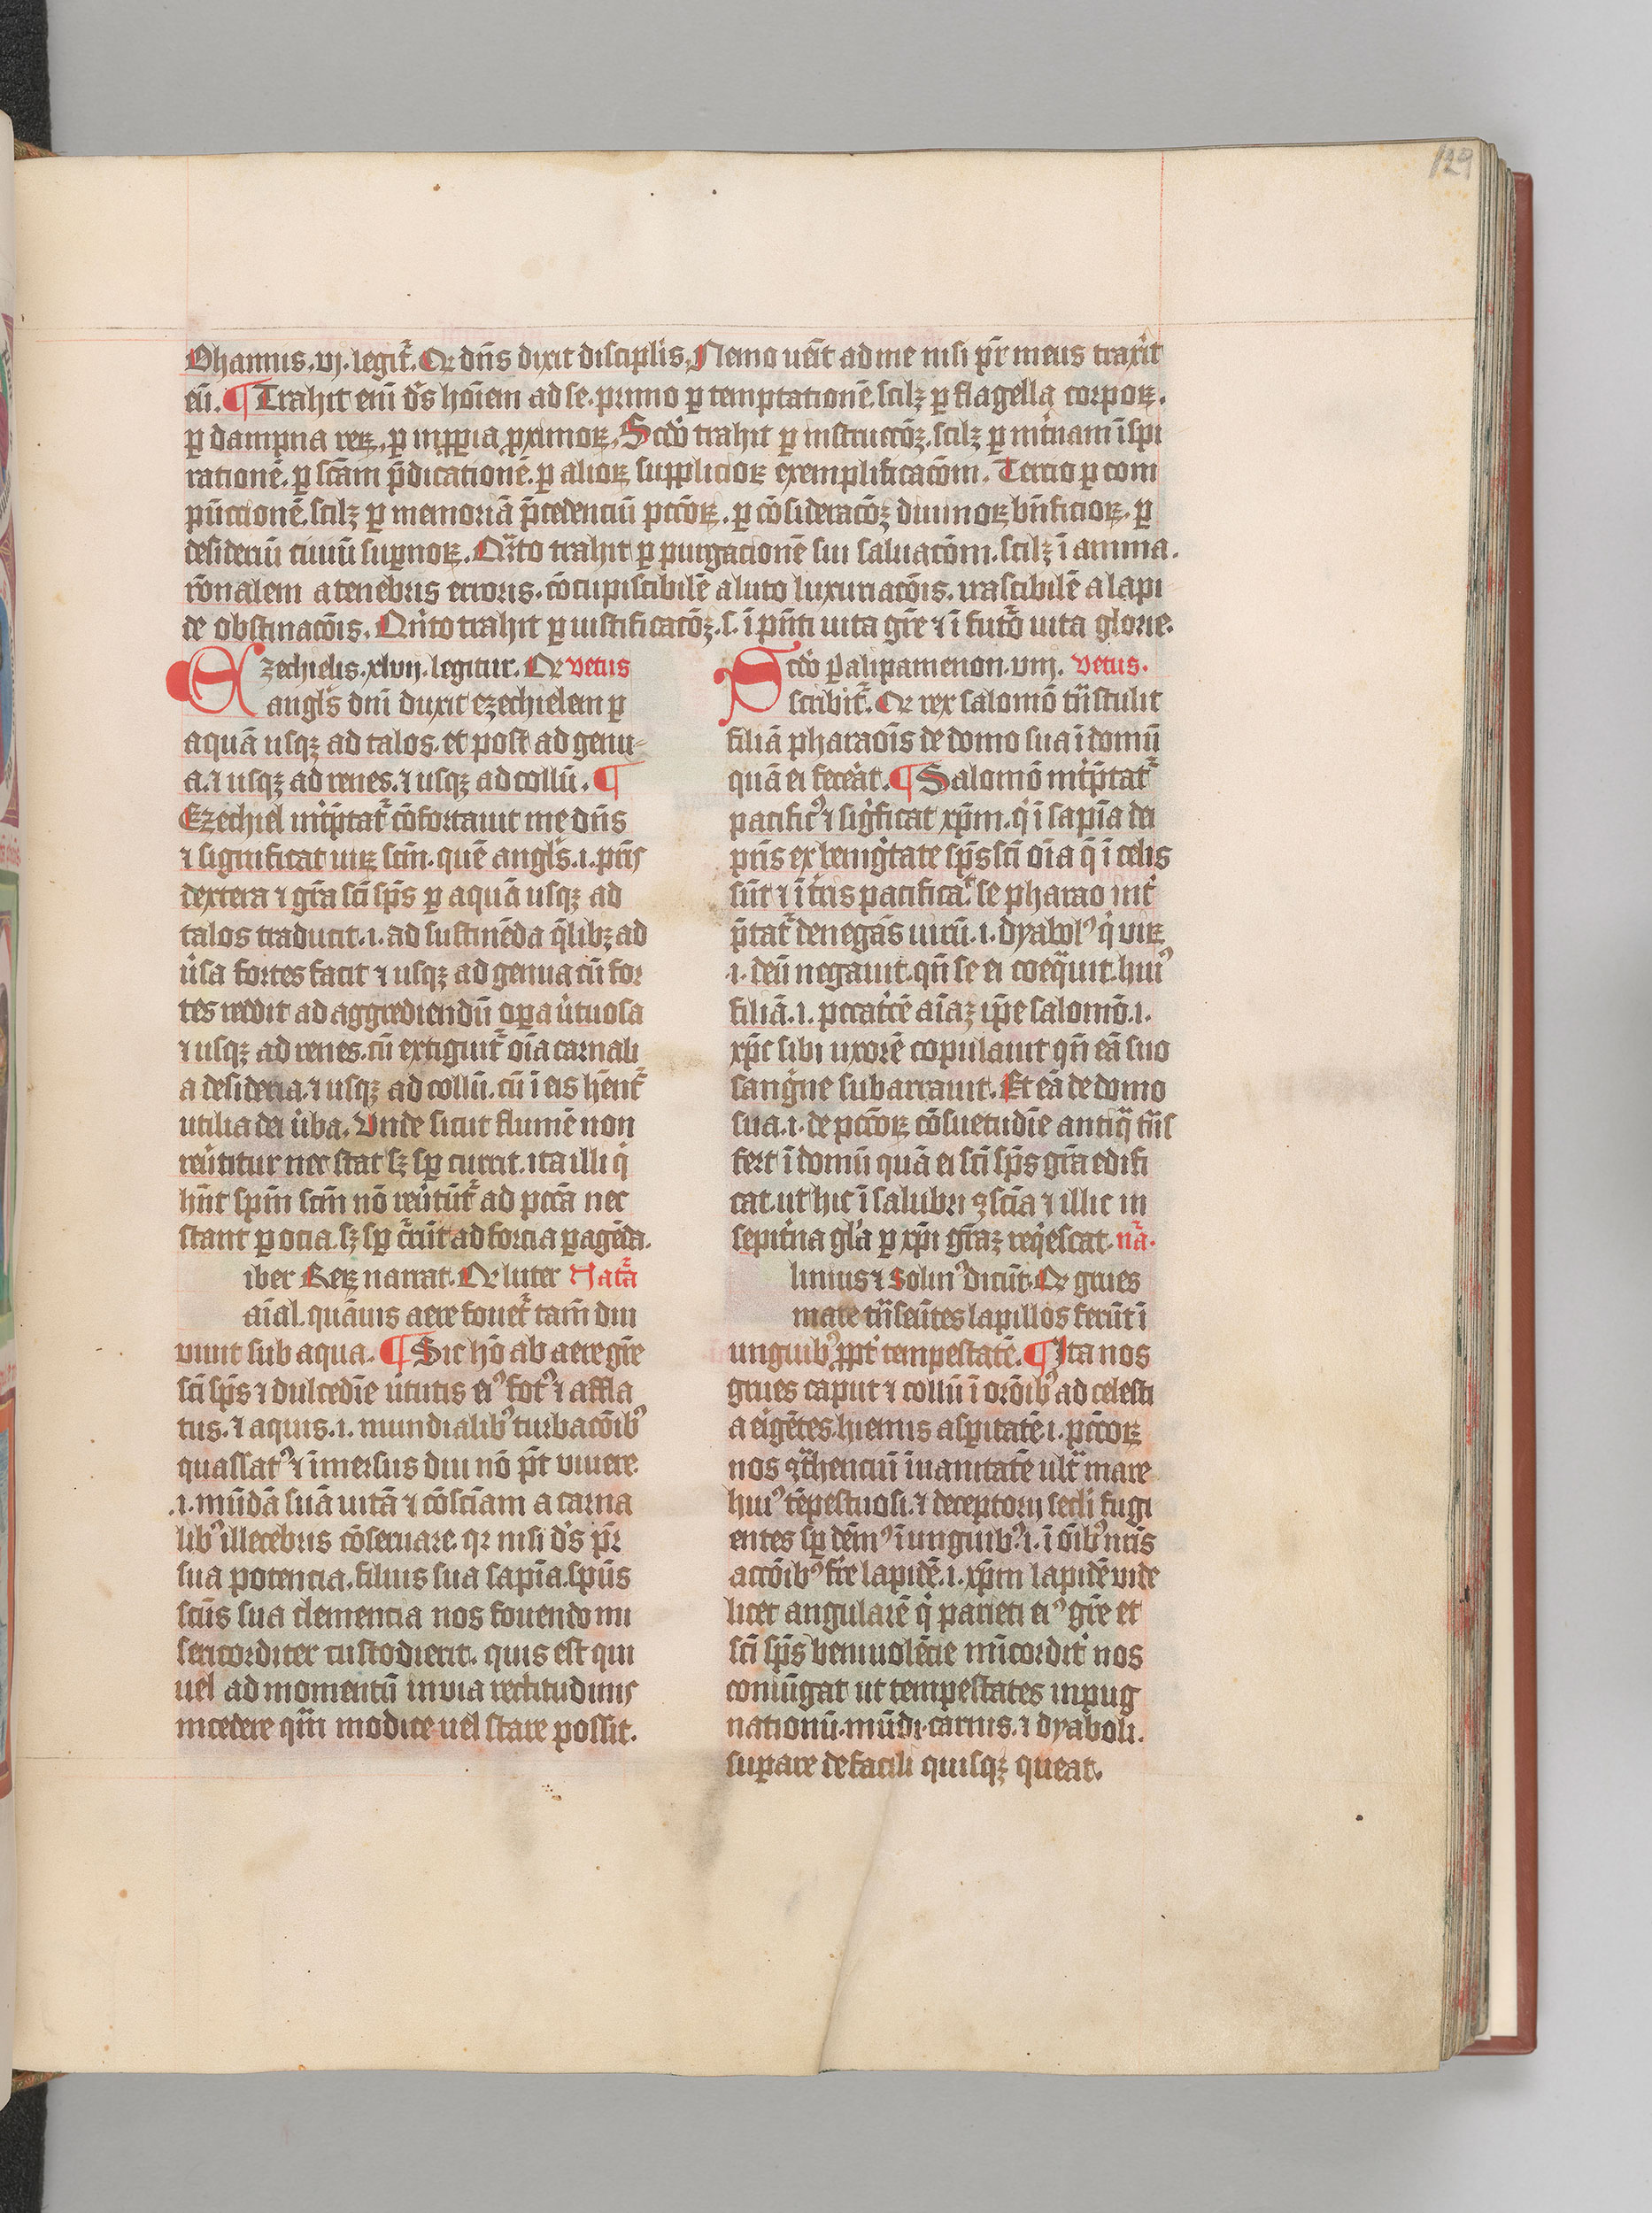 129
Ohannis. vj. legit᷑. Qr dn̄s dixit discipl̄is. Nemo uēit ad me nisi pr̄ meus traxit
eū. ¶ Trahit enī ds̄ hoīem ad se. primo ꝑ temptationē. scilꝫ ꝑ flagella corpoꝝ.
ꝑ dampna reꝝ. ꝑ ꝓximoꝝ. Scdō trahit ꝑ instructōꝫ. scilꝫ ꝑ int̾nam īspi
rationē. ꝑ scām p̄dicationē. ꝑ alioꝝ supplicioꝝ exemplificacōm. Tercio ꝑ com
pūccionē. scilꝫ ꝑ memoriā p̄cedenciū pctōꝝ. ꝑ cōsideracōꝫ diuinoꝝ bn̄ficioꝝ. ꝑ
desideriū ciuiū suꝑnoꝝ. Qr̄to trahit ꝑ purgacionē sui saluacōm. scilꝫ ī anima.
rōnalem a tenebris erroris. cōcupiscibilē a luto luxuriacōis. irascibilē a lapi
de obstinacōis. Qīnto trahit ꝑ iustificacōꝫ. s. ī pn̄ti uita gr̄e ⁊ ī futō uita glorie.
Ezechielis. xlvij. legitur. Qr vetus
angl̄s dn̄i duxit ezechielem ꝑ
aquā usqꝫ ad talos. et post ad genu=
a. ⁊ usqꝫ ad renes. ⁊ usqꝫ ad collū. ¶
Ezechiel int̾p̄tat᷑ cōfortauit me dn̄s
⁊ significat uiꝝ scm̄. quē angl̄s .i. pr̄is
dextera ⁊ gr̄a sc̄i sp̄s ꝑ aquā usqꝫ ad
talos traducit. i. ad sustinēda q̄libꝫ ad
u̾sa fortes facit ⁊ usqꝫ ad genua cū for
tes reddit ad aggrediendū oꝑa u̾tuosa
⁊ usqꝫ ad renes. cū extiguit᷑ oīa carnali
a desideria. ⁊ usqꝫ ad collū. cū ī eis hēnt᷑
utilia dei u̾ba. Vnde sicut flumē non
reu̾titur nec stat sꝫ sꝑ currit. ita illi q̇
hn̄t spm̄ scm̄ nō reu̾tūt᷑ ad pctā nec
stant ꝑ ocia. sꝫ sꝑ c̄rūt ad forcia ꝑagēda.
iber Reꝝ narrat. Qr luter Nat᷑a
aīal. quāuis aere fouet᷑ tam̄ diu
viuit sub aqua. ¶ Sic hō ab aere gr̄e
sc̄i sp̄s ⁊ dulcedīe u̾tutis eiꝰ fotꝰ ⁊ affla
tus. ⁊ aquis. i. mundialibꝰ turbacōibꝰ
quassatꝰ ⁊ īmersus diu nō pt̄ viuere
.i. mūdā suā uitā ⁊ cōsciam a carna
libꝰ illecebris cōseruare. qr nisi ds̄ pr̄
sua potencia. filius sua sapīa. spūs
scūs sua clemencia nos fouendo mi
sericorditer custodierit. quis est qui
uel ad momentū in via rectitudinis
incedere qm̄ modice uel stare possit.
Scdō ꝑalipamenon. viij. vetus.
scribit᷑. Qr rex salomō tn̄stulit
filiā pharaoīs de domo sua ī domū
quā ei fec̾at. ¶ Salomō int̾p̄tat᷑
pacificꝰ ⁊ sig̾ficat xpm̄. q̇ ī sapīa dei
pr̄is ex benig̾tate sp̄s sc̄i oīa q̄ ī celis
sūt ⁊ ī t̾ris pacificat᷑ se pharao int̾
p̄tat᷑ denegās uirū. i. dyabolꝰ q̇ viꝝ
.i. deū negauit. qn̄ se ei coeq̄uit. huiꝰ
filiā. i. pccat̾cē aīaꝫ ip̄e salomō. i.
xp̄c sibi uxorē copulauit qn̄ eā suo
sangne subarrauit. Et eā de domo
sua. i. de pctōꝝ cōsuetudīe antiq̄ tn̄s
fert ī domū quā ei sc̄i sp̄s gr̄a edifi
cat. ut hic ī salubri ꝯscīa ⁊ illic in
sepit̾na gl̄a ꝑ xp̄i gr̄aꝫ req̇escat. na᷑.
linius ⁊ Solinꝰ dicūt. Qr grues
mare tn̄seūtes lapillos ferūt ī
unguibꝰ ꝓpt̾ tempestatē. ¶ Ita nos
grues caput ⁊ collū ī orōibꝰ ad celesti
a eigētes. hiemis asꝑitatē .i. pctōꝝ
nos ꝯt̾henciū īuanitatē ult᷑ mare
huiꝰ tēpestuosi. ⁊ deceptorij secl̄i fugi
entes sꝑ dēmꝰ ī unguibꝰ. i. ī oībꝰ nr̄is
accōibꝰ fr̄e lapidē. i. xpm̄ lapidē vide
licet angularē q̇ parieti eiꝰ gr̄e et
sc̄i sp̄s beniuolēcie mīcordit̾ nos
coniūgat ut tempestates inpug
nationū. mūdi. carnis. ⁊ dyaboli.
suꝑare de facili quisqꝫ queat.